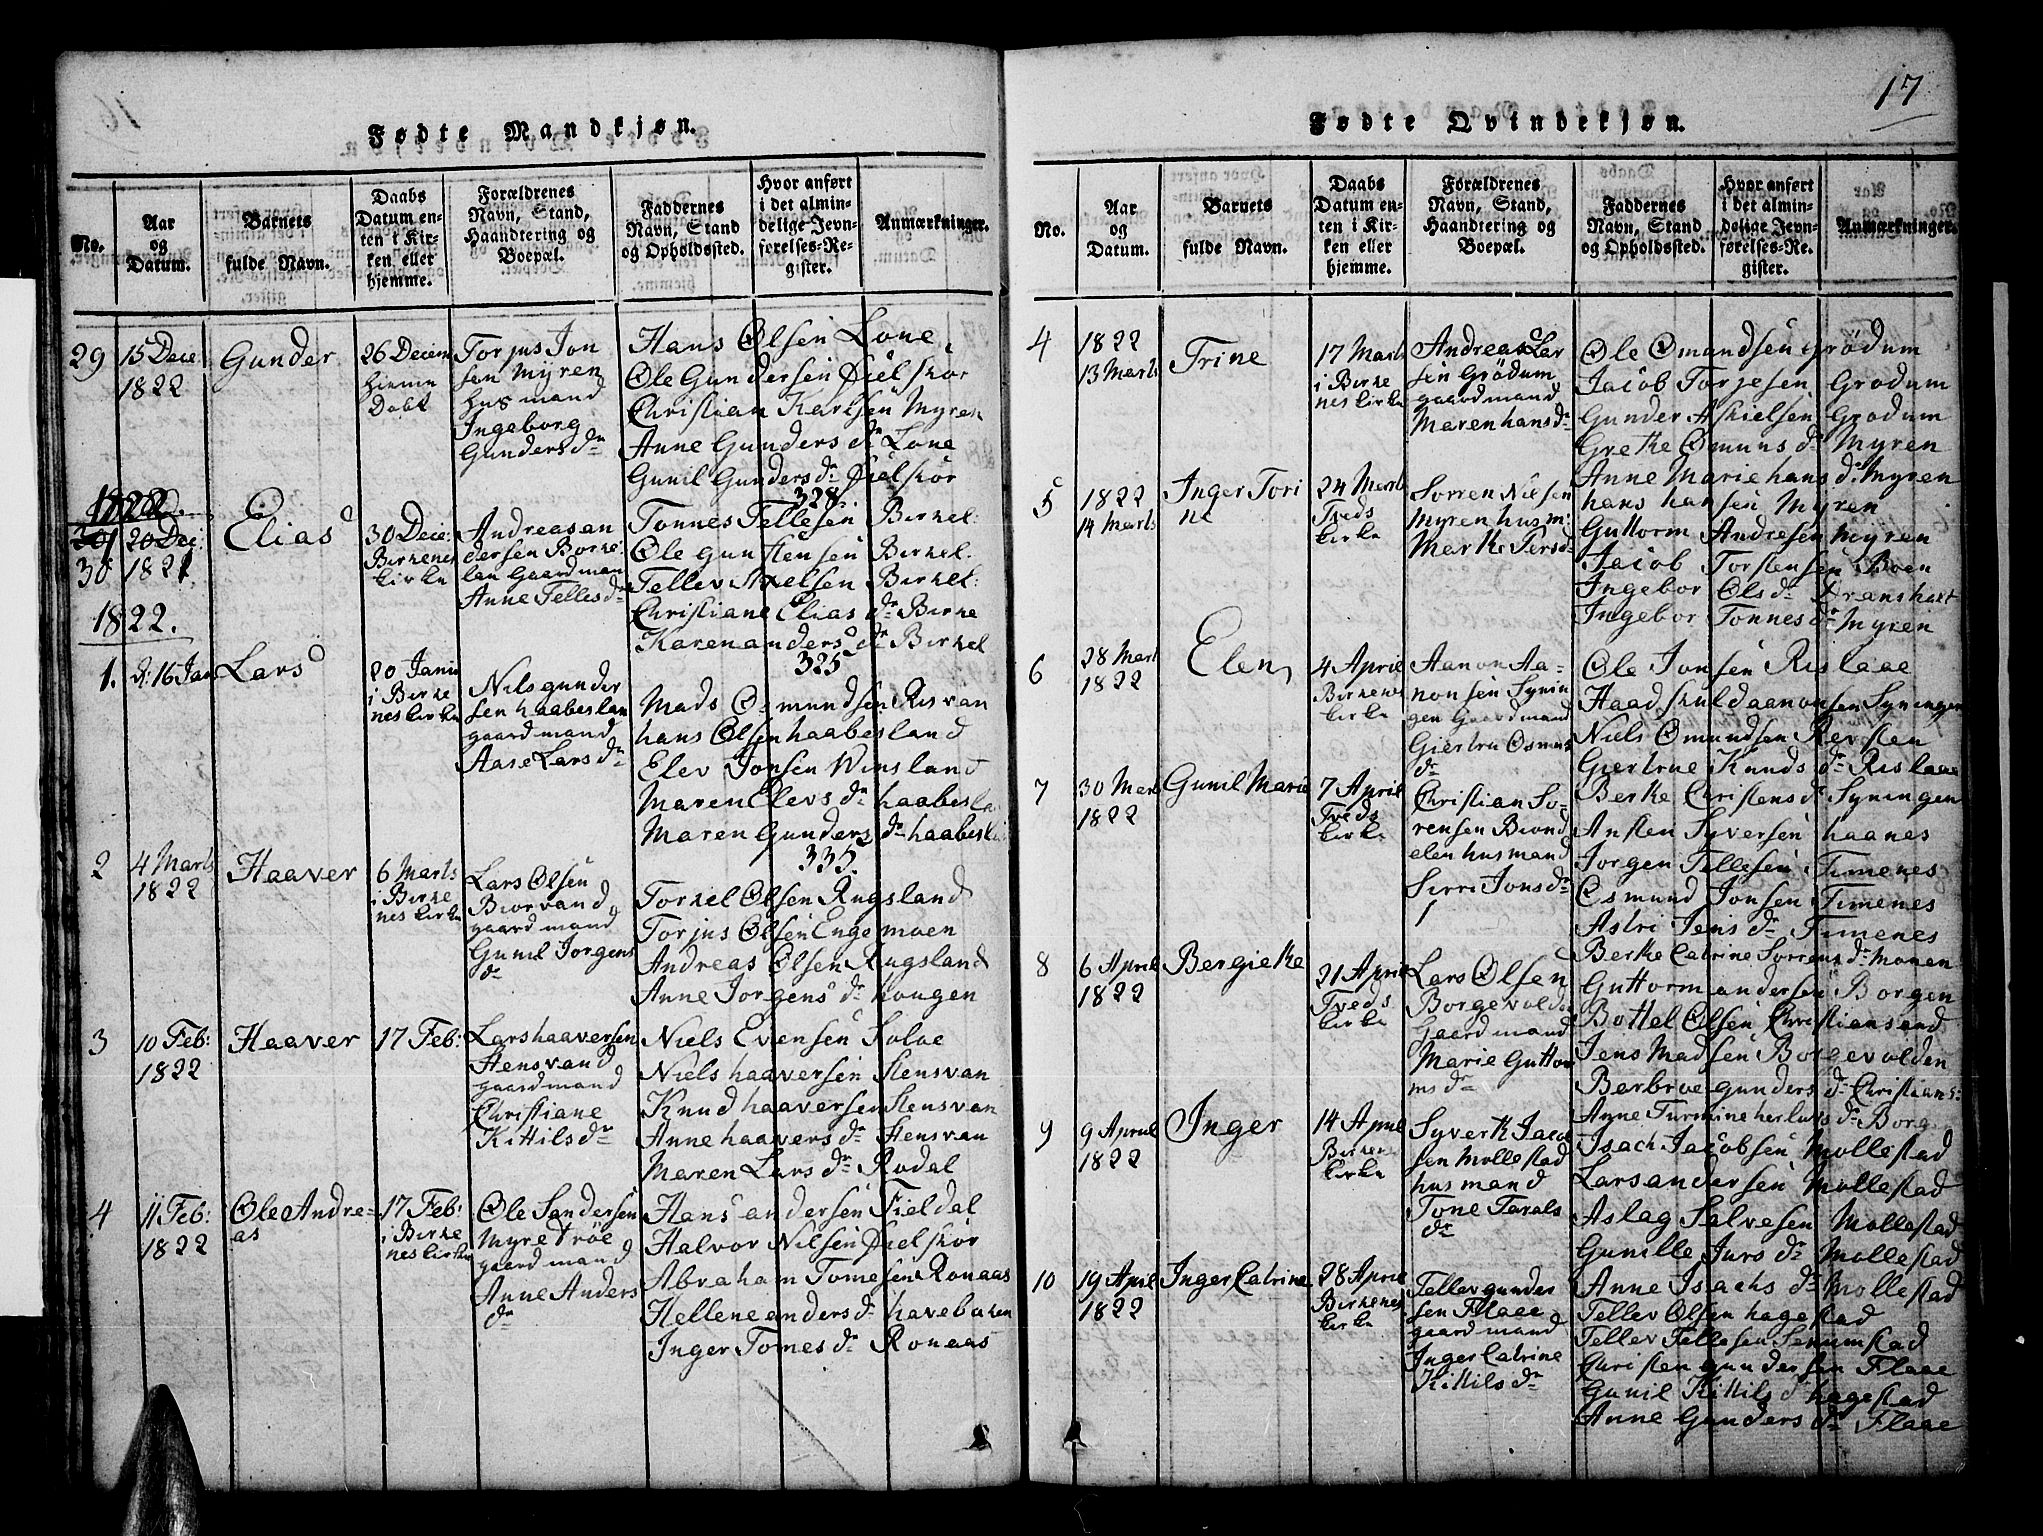 17
Fødte Mandkjøn.
No.
Aar
og
Datum.
Barnets
fulde Navn.
Daabs
Datum en-
ten i Kir-
ken eller
hjemme.
Forældrenes
Navn, Stand,
Haandtering og
Boepæl.
Faddernes
Navn, Stand
og Opholdssted.
Hvor anført
i det almin-
delige Jevn-
førelses-Re-
gister.
Anmærkninger.
29
15 Dece
1822
Gunder
26 Decem
hiemme
Døbt
Torjus Jon
sen Myren
husmand
Ingeborg
Gunders dr
Hans Olsen Lone
Ole Gundersen Fielskor
Christian Karlsen Myren
Anne Gunders dr Lone
Gunil Gunders dr Fielskor
328
1822
30
20 Dec:
1821
Elias
30 Dece:
Birkenes
kirke
Andreas an
dersen Borke
len Gaardman
Anne Telles dr
Tonnes Tellesen Birkel:
Ole gunstensen Birkel.
Tellev Axelsen Birkel:
Christiane Elias dr Birke
Karen anders dr Birkel
325
1822.
1.
d: 16 Jan
Lars
20 Janu
i Birke
nes kirke
Nils gunder
sen haabeslan
gaardmand
Aase Lars dr
Mads Osmundsen Risvan
hans Olsen haabesland
Elev Jonsen Winsland
Maren Elevs dr haabesla
Maren Gunders dr haabesla
335.
2
4 Marts
1822
Haaver
6 Marts
i Birke
nes kirke
Lars Olsen
Biorvand
gaardmand
Gunil Jorgens
dr
Torkel Olsen Rugsland
Torjus Olsen Engemoen
Andreas Olsen Rugsland
Anne Jorgens dr hougen
3
10 Feb:
1822
Haaver
17 Feb:
Lars haaversen
Stensvand
gaardmand
Christiane
Kittils dr
Niels Evensen Solae
Niels haaversen Stensvan
Knud haaversen Stensvan
Anne haavers dr Stensvan
Maren Lars dr Rodal
4
11 Feb:
1822
Ole Andre-
as
17 Feb:
i Birke
nes kirke
Ole Sandersen
Myretröe
gaardmand
Anne Anders
dr
Hans andersen Fieldal
Halvor Nilsen Fielskor
Abraham Tomesen Ronaas
Hellene anders dr havebaken
Inger Tomes dr Ronaas
Fødte Qvindekjøn.
No.
Aar
og
Datum.
Barnets
fulde Navn.
Daabs
Datum en-
ten i Kir-
ken eller
hjemme.
Forældrenes
Navn, Stand,
Haandtering og
Boepæl.
Faddernes
Navn, Stand
og Opholdssted.
Hvor anført
i det almin-
delige Jevn-
førelses-Re-
gister.
Anmærkninger.
4
1822
13 Marts
Trine
17 Marts
i Birke
nes kirke
Andreas Lar
sen Grödum
gaardmand
Maren hans dr
Ole Omandsen Grödum
Jacob Torjesen Grodum
Gunder Askielsen Grodum
Grethe Omuns dr Myren
Anne Marie hans dr Myren
5
1822
14 Marts
Inger Tori
ne
24 Marts
Tveds
kirke
Sorren Nielsen
Myren husm:
Marthe Ters dr
hans hansen Myren
Guttorm Andresen Myren
Jacob Torstensen Boen
Ingebor Ols dr Dranshalt
Ingebor Tonnes dr Myren
6
28 Marts
1822
Elen
4 April
Birkenes
kirke
Aanon Aa-
nonsen Synin
gen Gaardmand
Giertru Osmus
dr
Ole Jonsen Rislaae
Haadskuld aanonsen Syningen
Niels Omundsen Revsten
Giertrue Knuds dr Rislaae
Berthe Christens dr Syningen
7
30 Marts
1822
Gunil Marie
7 April
Tveds
kirke
Christian So-
rensen Biond
elen husmand
Sirri Jons dr
1
Ansten Syversen haanes
Jorgen Tellesen Timenes
Osmund Jonsen Timenes
Astri Jens dr Timenes
Berthe Catrine Sorrens dr Monen
8
6 April
1822
Bergiethe
21 April
Tveds
kirke
Lars Olsen
Borgevolde
Gaardmand
Marie Guttor
ms dr
Guttorm andersen Borgen
Bottel Olsen Christiansand
Jens Madsen Borgevolden
Berbroe gunders dr Christians:
Anne Turmine herlufs dr Borg
9
9 April
1822
Inger
14 April
Birkenes
kirke
Syvert Jacob
sen Mollestad
husmand
Tone Tarals
dr
Isach Jacobsen Mollestad
Lars andersen Mollestad
Aslag Salvesen Mollestad
Gunille Jurs dr Mollestad
Anne Isachs dr Mollestad
10
19 April
1822
Inger Catrine
28 April
Birkenes
kirke
Tellev gunder
sen Flaae
gaardmand
Inger Catrine
Kittils dr
Tellev Olsen hagestad
Tellev Tellesen Senumstad
Christen gundersen Flaae
Gunil Kittils dr hagestad
Anne Gunders dr Flaae